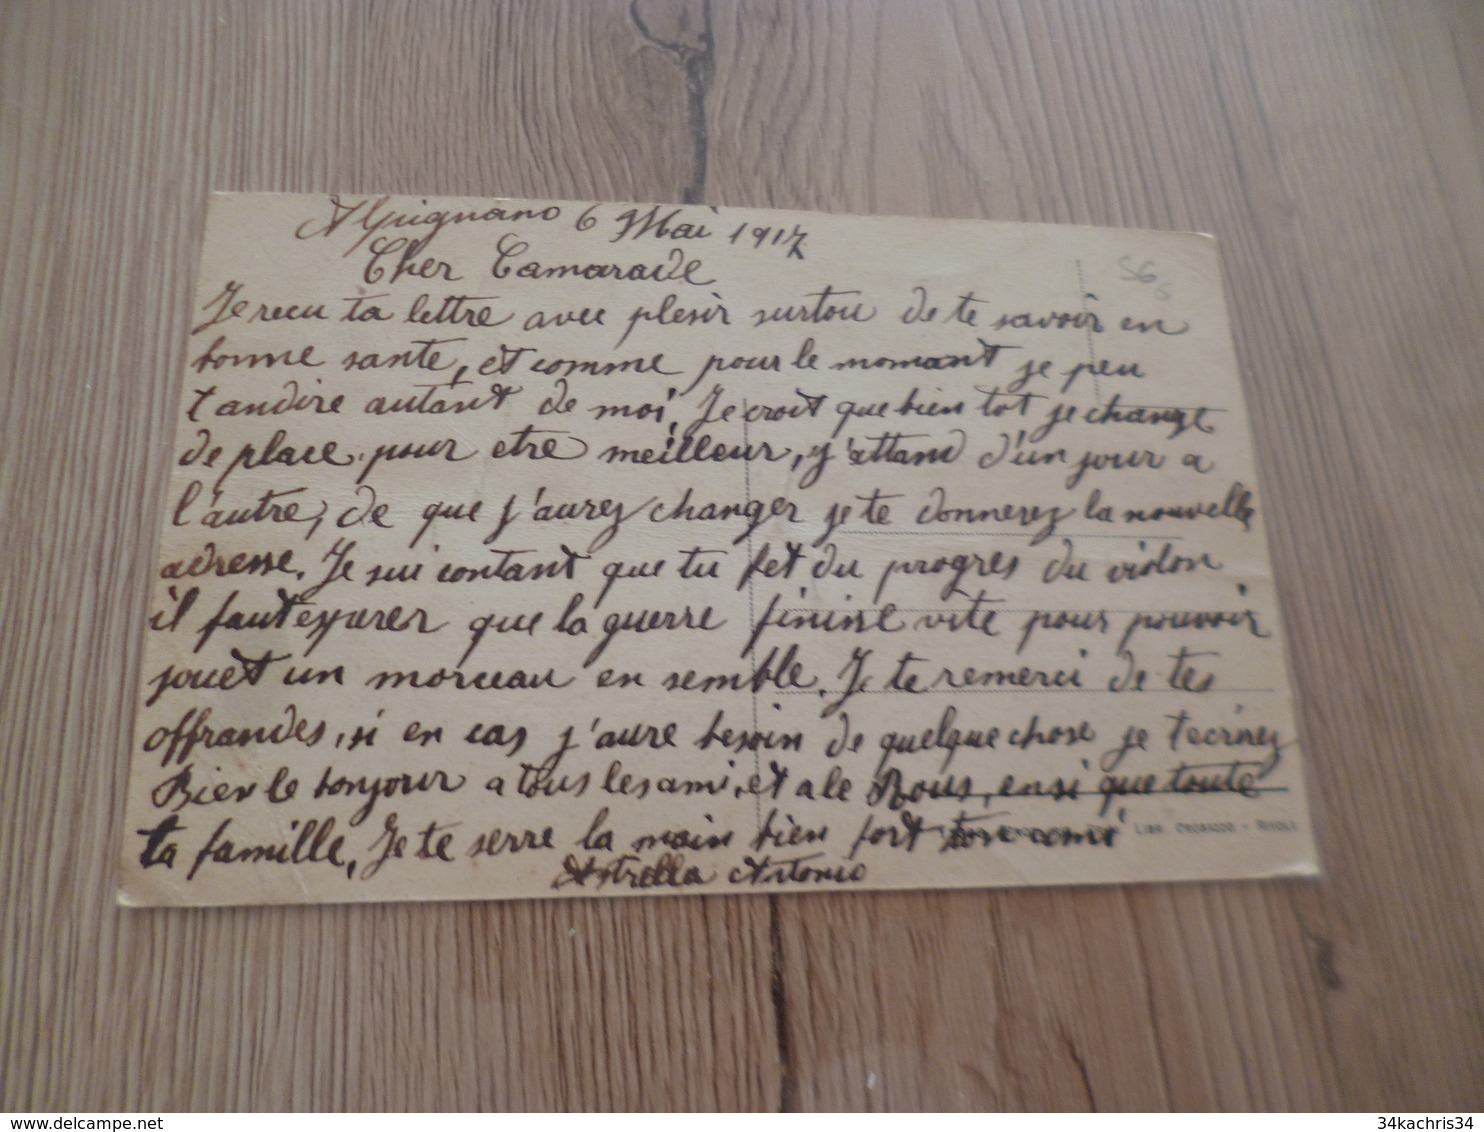 Alpignano 6 Mai 1917
56
Cher Camarade
Je recu ta lettre avec plesir surtou de te savoir en
bonne sante, et comme pour le momant je peu
t andire autant de moi, Je croit que bien tot je change
de place, pour etre meilleur, j'attand d'un jour a
l'autre, de que j'aurez changer je te donnerez la nouvelle
adresse. Je sui contant que tu fet du progres du violon
il faut esparer que la guerre finisse vite pour pouvoir
jouet un morceau en semble. Je te remerci de tes
offrandes, si en cas j'aure besoin de quelque chose je t ecrirez
Bien le bonjour a tous les ami, et a le Rous, ensi que toute
ta famille, Je te serre la main bien fort ton ami
LIBR. - RIVOLI
Astrella Antonio
34kachris34